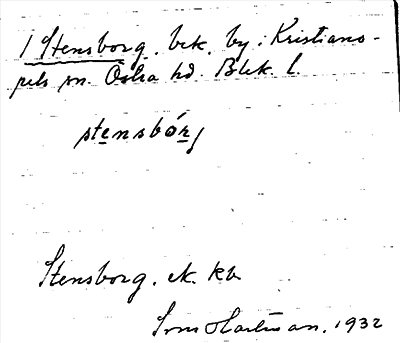 1 Stensborg. bek. by: Kristiano-
pels sn. Östra hd. Blek. l.
stensbórj
Stensborg. ek. kb
Sven Hartman. 1932